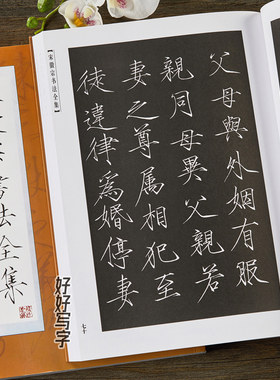 父母與外姻有服
親同母異父親若
妻之尊属相犯至
徒違律為婚停妻
【宋徽宗书法全集】
七十
书法全集
好好写字